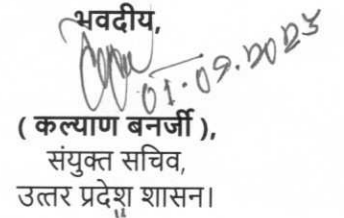 भवदीय,
01.09.2023
( कल्याण बनर्जी ),
संयुक्त सचिव,
उत्तर प्रदेश शासन।